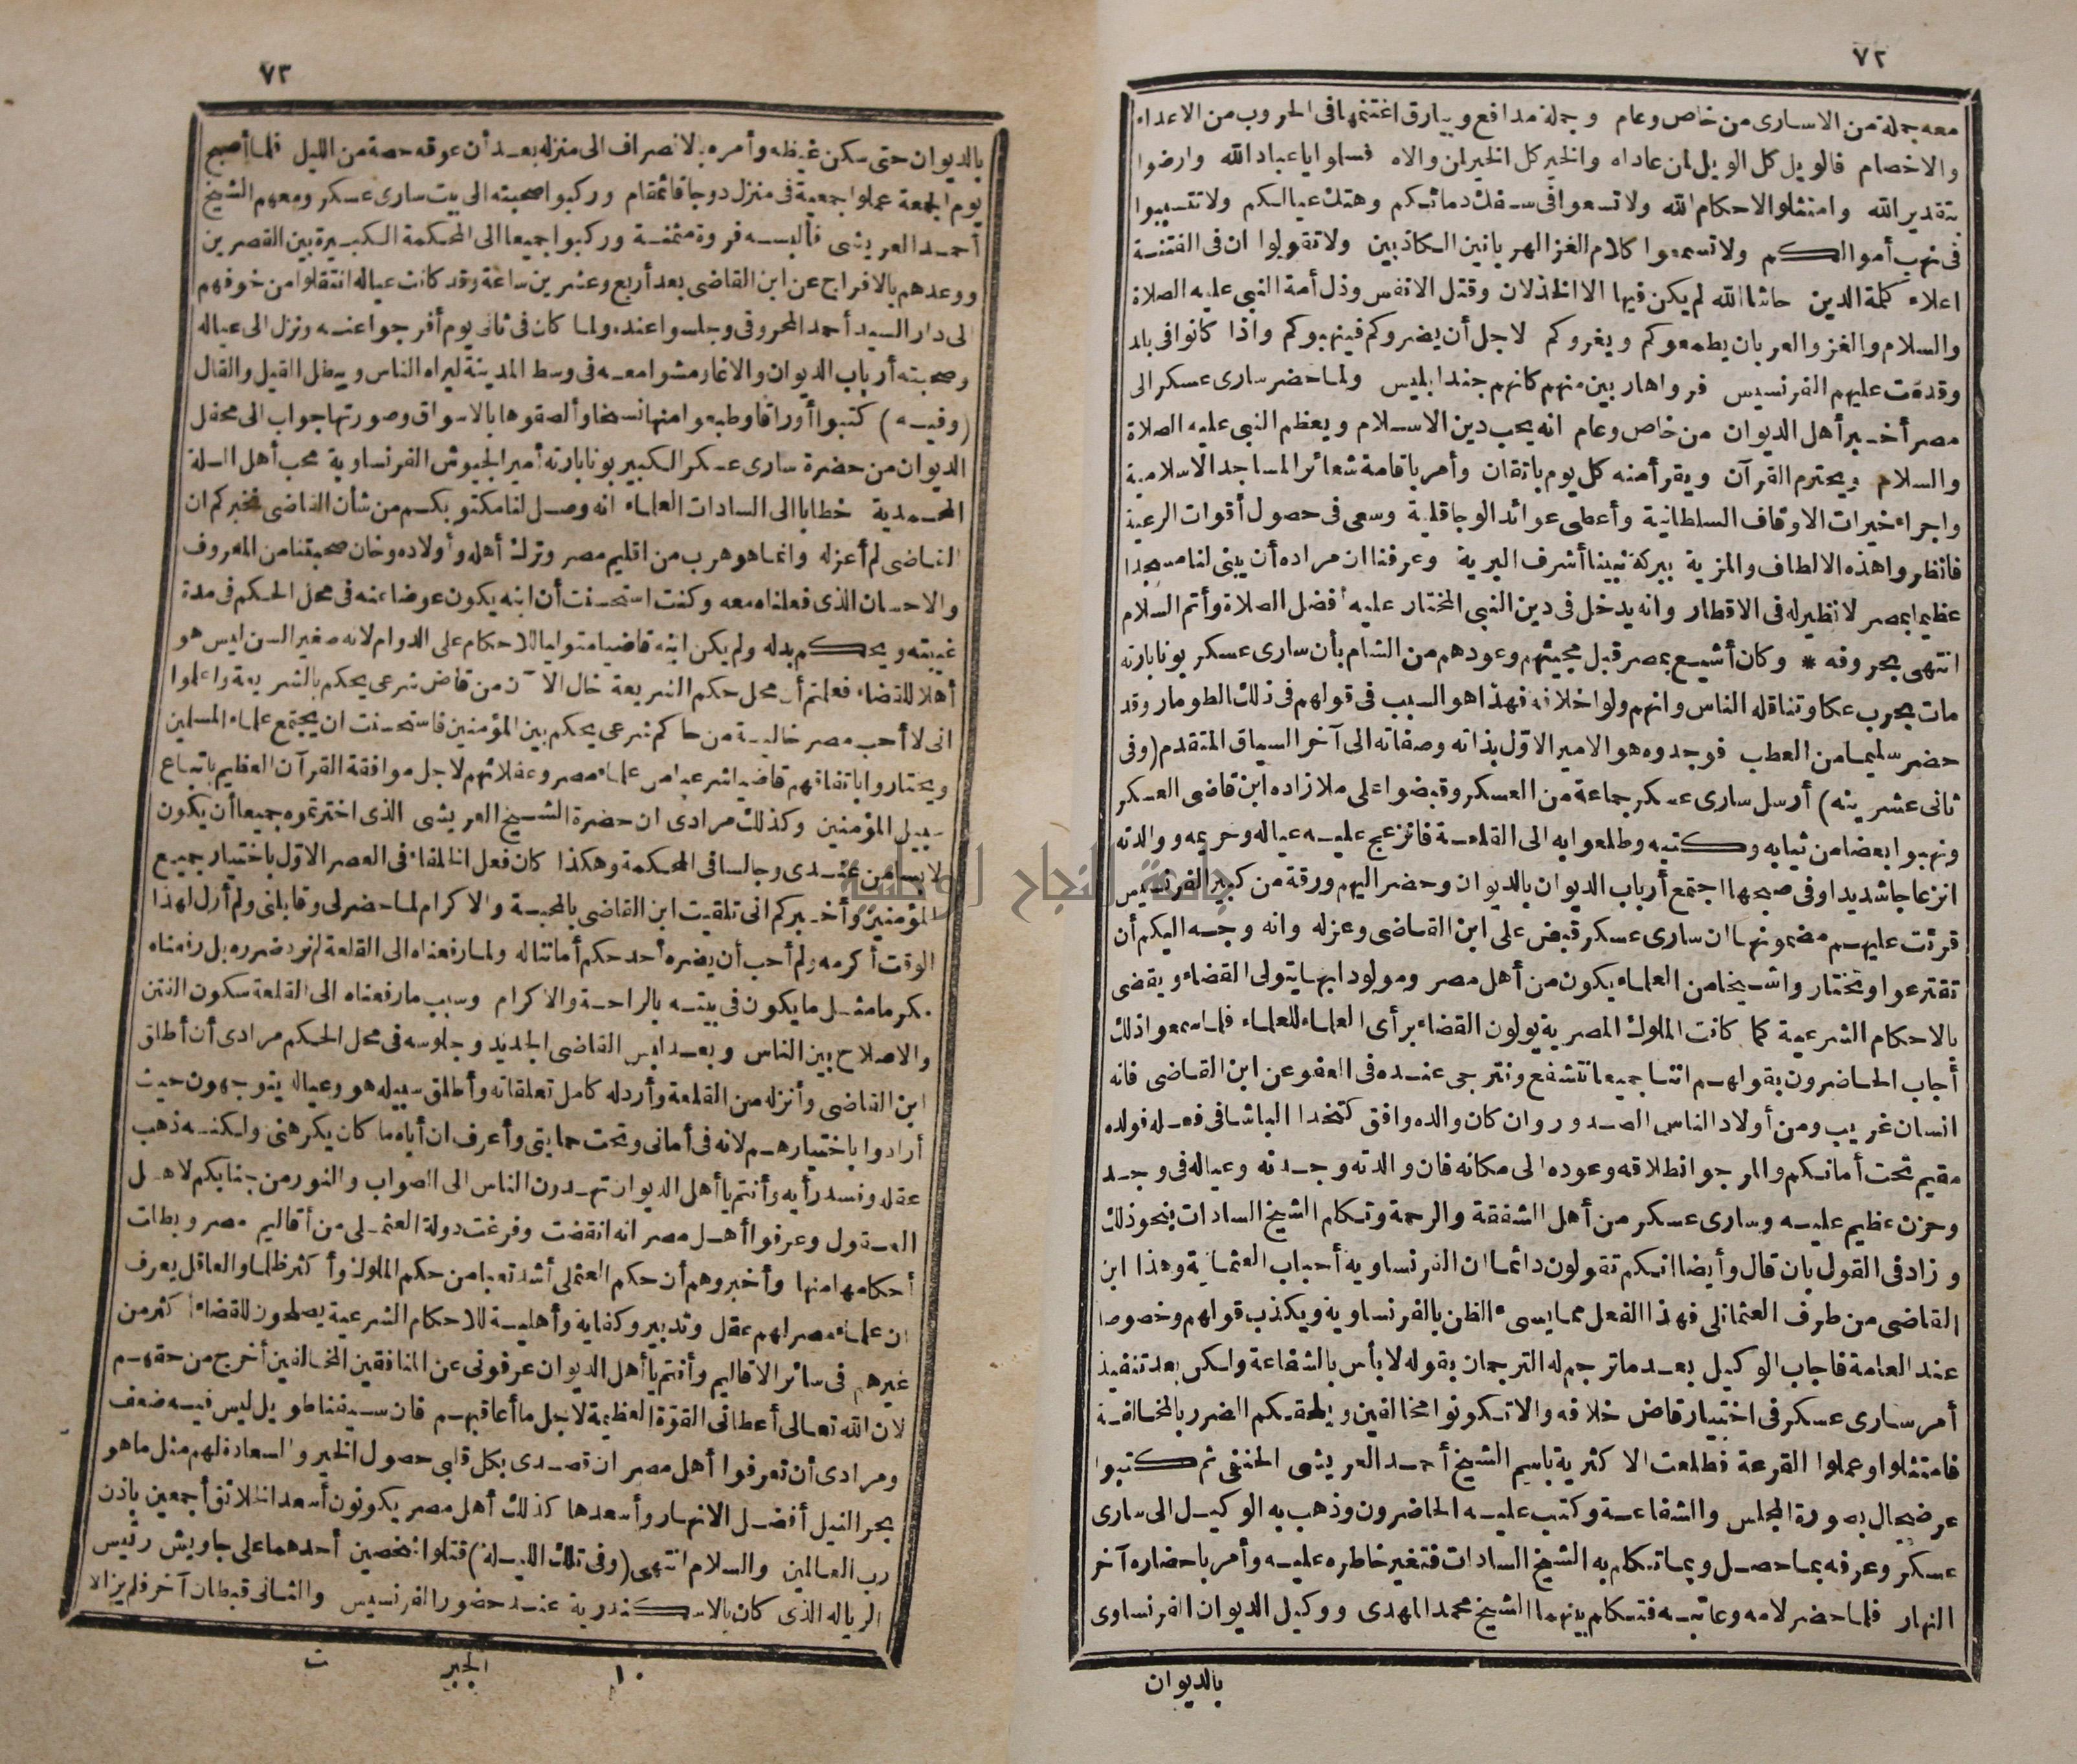 ٧٢
معه جملة من الاسارى من خاص وعام وجملة مدافع وبيارق اغتنمها فى الحروب من الاعداء
والاخصام فالويل كل الويل لمن عاداه والخير كل الخير لمن والاه فسلموا ياعباد الله وارضوا
بتقدير الله وامتثلوا لاحكام الله ولا تسعوا فى سفك دمائكم وهتك عيالكم ولا تتسببوا
فى نهب أموالكم ولا تسمعوا كلام الغز الهربانين الكاذبين ولا تقولوا ان فى الفتنة
اعلاء كلمة الدين حاشا الله لم يكن فيها الا الخذلان وقتل الانفس وذل أمة النبى عليه الصلاة
والسلام والغز والعربان يطمعوكم ويغروكم لاجل أن يضروكم فينهبوكم واذا كانوا فى بلد
وقدمت عليهم الفرنسيس فروا هاربين منهم كانهم جند ابليس ولما حضر سارى عسكر الى
مصر أخبر أهل الديوان من خاص وعام انه يحب دين الاسلام ويعظم النبى عليه الصلاة
والسلام ويحترم القرآن ويقرأ منه كل يوم باتقان وأمر باقامة شعائر المساجد الاسلامية
واجراء خيرات الاوقاف السلطانية وأعطى عوائد الوجاقلية وسعى فى حصول أقوات الرعية
فانظروا هذه الالطاف والمزية ببركة نبينا أشرف البرية وعرفنا ان مراده أن يبنى لنا مسجدا
عظيما بمصر لا نظير له فى الاقطار وانه يدخل فى دين النبى المختار عليه أفضل الصلاة وأتم السلام
انتهى بحروفه * وكان أشيع بمصر قبل مجيئهم وعودهم من الشام بأن سارى عسكر بونابارته
مات بحرب عكا وتناقله الناس وانهم ولوا خلافه فهذا هو السبب فى قولهم فى ذلك الطومار وقد
حضر سليما من العطب فوجدوه هو الامير الاوّل بذاته وصفاته الى آخر السياق المتقدم (وفى
ثانى عشرينه) أرسل سارى عسكر جماعة من العسكر وقبضوا على ملازاده ابن قاضى العسكر
ونهبوا بعضا من ثيابه وكتبه وطلعوا به الى القلعة فانزعج عليه عياله وحريمه ووالدته
انزعاجا شديدا وفى صبحها اجتمع أرباب الديوان بالديوان وحضر اليهم ورقة من كبير الفرنسيس
قرئت عليهم مضمونها ان سارى عسكر قبض على ابن القاضى وعزله وانه وجه اليكم أن
تقترعوا وتختاروا شيخا من العلماء يكون من أهل مصر ومولودا بها يتولى القضاء ويقضى
بالاحكام الشرعية كما كانت الملوك المصرية يولون القضاء برأى العلماء للعلماء فلما سمعوا ذلك
أجاب الحاضرون بقولهم اننا جميعا نتشفع ونترجى عنده فى العفو عن ابن القاضى فانه
انسان غريب ومن أولاد الناس الصدور وان كان والده وافق كتخدا الباشا فى فعله فولده
مقيم تحت أمانكم والمرجو انطلاقه وعوده الى مكانه فان والدته وجدته وعياله فى وجد
وحزن عظيم عليه وسارى عسكر من أهل الشفقة والرحمة وتكلم الشيخ السادات بنحو ذلك
وزاد فى القول بان قال وأيضا انكم تقولون دائما ان الفرنساوية أحباب العثمانية وهذا ابن
القاضى من طرف العثمانلى فهذا الفعل مما يسىء الظن بالفرنساوية ويكذب قولهم وخصوصا
عند العامة فاجاب الوكيل بعد ما ترجم له الترجمان بقوله لا بأس بالشفاعة ولكن بعد تنفيذ
أمر سارى عسكر فى اختيار قاض خلافه والا تكونوا مخالفين ويلحقكم الضرر بالمخالفة
فامتثلوا وعملوا القرعة فطلعت الاكثرية باسم الشيخ أحمد العريشى الحنفى ثم كتبوا
عرضحال بصورة المجلس والشفاعة وكتب عليه الحاضرون وذهب به الوكيل الى سارى
عسكر وعرفه بما حصل وبما تكلم به الشيخ السادات فتغير خاطره عليه وأمر باحضاره آخر
النهار فلما حضر لامه وعاتبه فتكلم بينهما الشيخ محمد المهدى ووكيل الديوان الفرنساوى
بالديوان
٧٣
بالديوان حتى سكن غيظه وأمره بالانصراف الى منزله بعد أن عوقه حصة من الليل فلما أصبح
يوم الجمعة عملوا جمعية فى منزل دوجا قائمقام وركبوا صحبته الى بيت سارى عسكر ومعهم الشيخ
أحمد العريشى فألبسه فروة مثمنة وركبوا جميعا الى المحكمة الكبيرة بين القصرين
ووعدهم بالافراج عن ابن القاضى بعد أربع وعشرين ساعة وقد كانت عياله انتقلوا من خوفهم
الى دار السيد أحمد المحروقى وجلسوا عنده ولما كان فى ثانى يوم أفرجوا عنه ونزل الى عياله
وصحبته أرباب الديوان والاغا ومشوا معه فى وسط المدينة ليراه الناس ويبطل القيل والقال
(وفيه) كتبوا أوراقا وطبعوا منها نسخا وألصقوها بالاسواق وصورتها جواب الى محفل
الديوان من حضرة سارى عسكر الكبير بونابارته أمير الجيوش الفرنساوية محب أهل الملة
المحمدية خطابا الى السادات العلماء انه وصل لنا مكتوبكم من شأن القاضى نخبركم ان
القاضى لم أعزله وانما هو هرب من اقليم مصر وترك أهله وأولاده وخان صحبتنا من المعروف
والاحسان الذى فعلناه معه وكنت استحسنت أن ابنه يكون عوضا عنه فى محل الحكم فى مدة
غيبته ويحكم بدله ولم يكن ابنه قاضيا متواليا للاحكام على الدوام لانه صغير السن ليس هو
أهلا للقضاء فعلمتم أن محل حكم الشريعة خال الآن من قاض شرعى يحكم بالشريعة واعلموا
انى لا أحب مصر خالية من حاكم شرعى يحكم بين المؤمنين فاستحسنت ان يجتمع علماء المسلمين
ويختاروا باتفاقهم قاضيا شرعيا من علماء مصر وعقلائهم لاجل موافقة القرآن العظيم باتباع
سبيل المؤمنين وكذلك مرادى ان حضرة الشيخ العريشى الذى اخترتموه جميعا أن يكون
لابسا من عندى وجالسا فى المحكمة وهكذا كان فعل الخلفاء فى العصر الاوّل باختيار جميع
المؤمنين وأخبركم انى تلقيت ابن القاضى بالمحبة والاكرام لما حضر لى وقابلنى ولم أزل لهذا
الوقت أكرمه ولم أحب أن يضره أحد حكم أماننا له ولما رفعناه الى القلعة لم نرد ضرره بل رفعناه
مكرما مثل ما يكون فى بيته بالراحة والاكرام وسبب ما رفعناه الى القلعة سكون الفتن
والاصلاح بين الناس وبعد لبس القاضى الجديد وجلوسه فى محل الحكم مرادى أن أطلق
ابن القاضى وأنزله من القلعة وأرد له كامل تعلقاته وأطلق سبيله هو وعياله يتوجهون حيث
أرادوا باختيارهم لانه فى أمانى وتحت حمايتى وأعرف ان أباه ما كان يكرهنى ولكنه ذهب
عقله وفسد رأيه وأنتم يا أهل الديوان تهدون الناس الى الصواب والنور من جنابكم لاهل
العقول وعرفوا أهل مصر انه انقضت وفرغت دولة العثملى من أقاليم مصر وبطلت
أحكامها منها وأخبروهم أن حكم العثملى أشد تعبا من حكم الملوك وأكثر ظلما والعاقل يعرف
ان علماء مصر لهم عقل وتدبير وكفاية وأهلية للاحكام الشرعية يصلحون للقضاء أكثر من
غيرهم فى سائر الاقاليم وأنتم يا أهل الديوان عرفونى عن المنافقين المخالفين أخرج من حقهم
لان الله تعالى أعطانى القوّة العظيمة لاجل ما أعاقبهم فان سيفنا طويل ليس فيه ضعف
ومرادى أن تعرفوا أهل مصر ان قصدى بكل قلبى حصول الخير والسعادة لهم مثل ما هو
بحر النيل أفضل الانهار وأسعدها كذلك أهل مصر يكونون أسعد الخلائق أجمعين باذن
رب العالمين والسلام انتهى (وفى تلك الليلة) قتلوا شخصين أحدهما على جاويش رئيس
الرياله الذى كان بالاسكندرية عند حضور الفرنسيس والثانى قبطان آخر فلم يزالا
١٠ الجبر ت
جامعة النجاح الوطنية